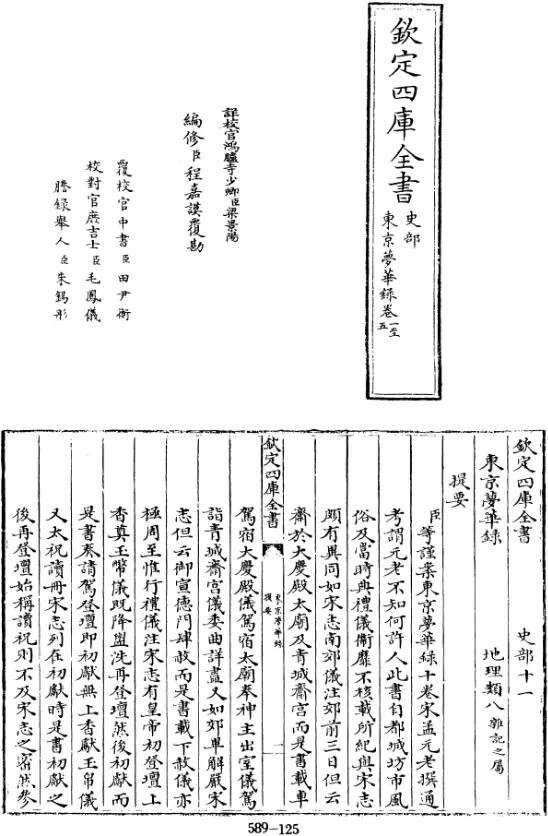 欽定四庫全書
史部
東京夢華錄卷一至五
詳校官鴻臚寺少卿臣梁景陽
編修臣程嘉謨覆勘
覆校官中書臣田尹衡
校對官庶吉士臣毛鳳儀
謄錄舉人臣朱鎢彤
欽定四庫全書
史部十一
東京夢華錄
地理類八雜記之屬
提要
臣等謹案東京夢華錄十卷宋孟元老撰通
考謂元老不知何許人此書自都城坊市風
俗及當時典禮儀衛靡不核載所紀與宋志
頗有異同如宋志南郊儀注郊前三日但云
齋於大慶殿太廟及青城齋宮而是書載車
欽定四庫全書
東京夢華錄
提要
一
駕宿大慶殿儀駕宿太廟奉神主出室儀駕
詣青城齋宮儀委曲詳盡又如郊畢解嚴宋
志但云御宣德門肆赦而是書載下赦儀亦
極周至惟行禮儀注宋志有皇帝初登壇上
香奠玉幣儀既降盥洗再登壇然後初獻而
是書奏請駕登壇即初獻無上香獻玉帛儀
又太祝讀冊宋志列在初獻時是書初獻之
後再登壇始稱讀祝則不及宋志之密然參
589-125